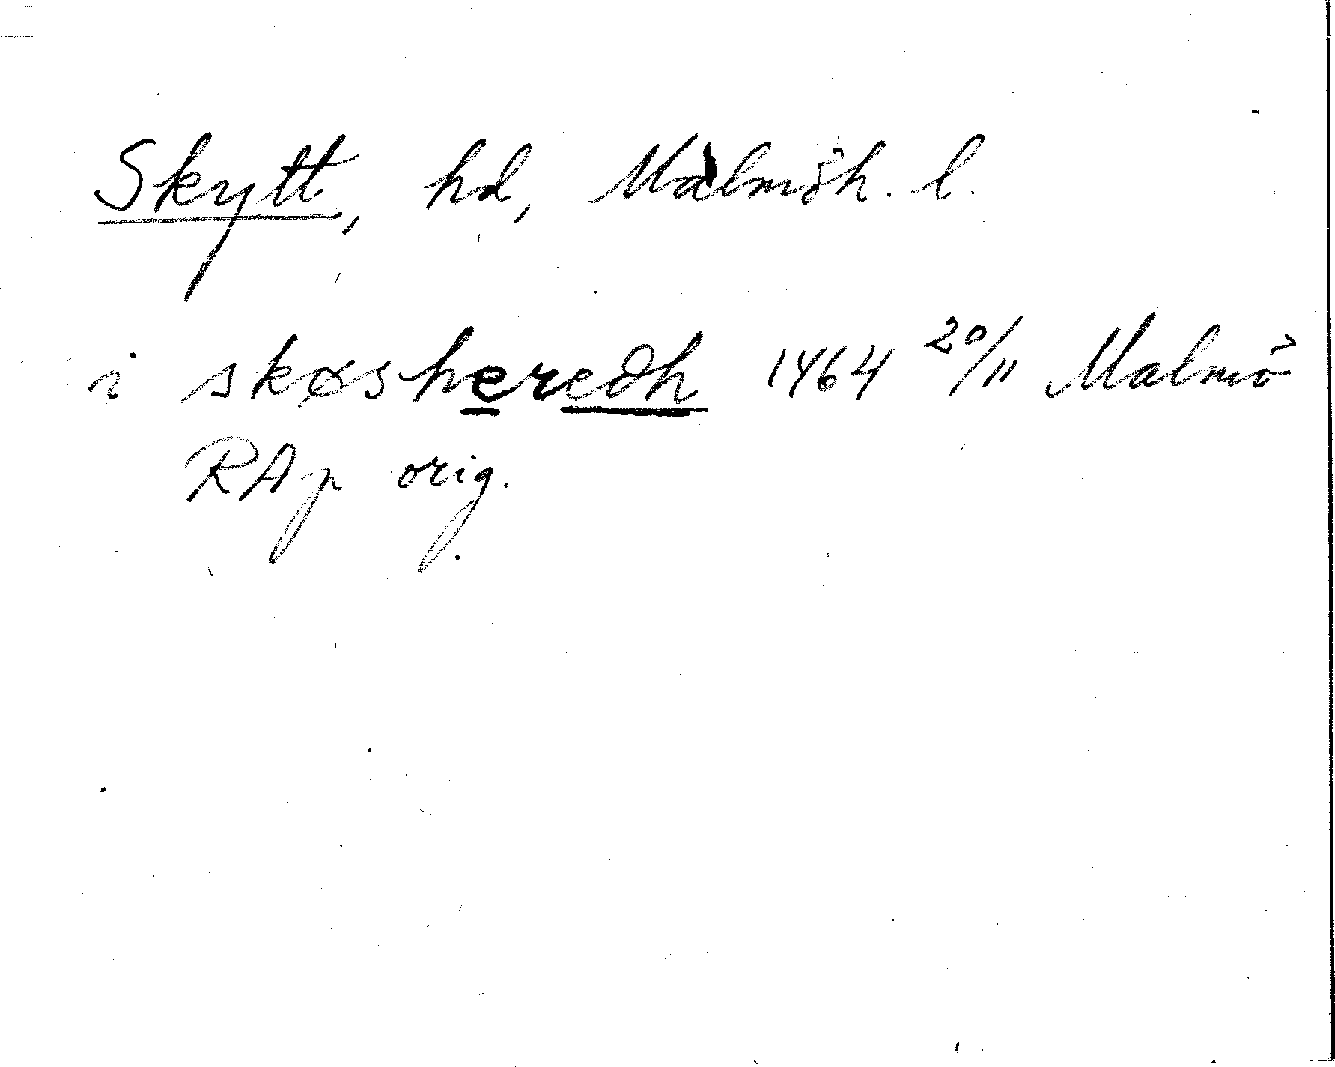 Skytt, hd, Malmöh. l.
i skøsheredh 1464 20/11 Malmö
RAp orig.